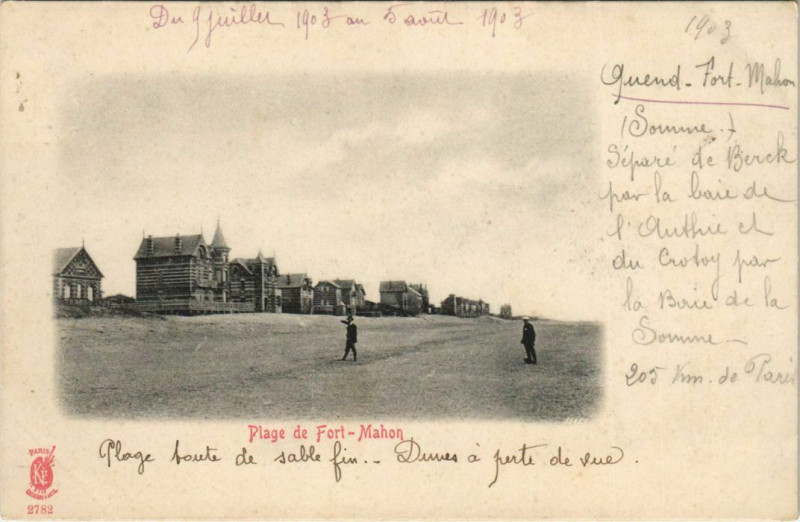 Du 9 juillet 1903 au 5 août 1903
1903
Quend-Fort-Mahon
(Somme.)
Séparé de Berck
par la baie de
l'Authie et
du Crotoy par
la Baie de la
Somme
205 Km. de Paris
Plage de Fort-Mahon
Plage toute de sable fin.- Dunes à perte de vue.
PARIS
2782